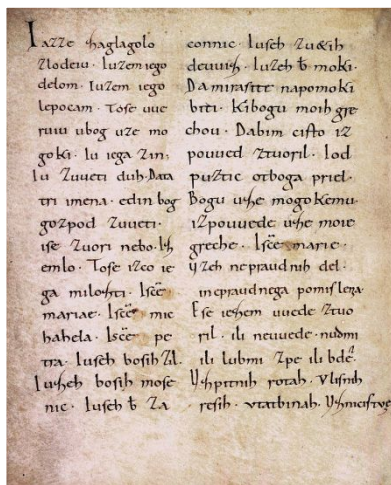 Iazze zaglagolo
zlodeiu. Iuzem iego
delom. Iuzem iego
lepocam. Tose uue
ruiu ubog uze mo
goki. Iu iega zin.
Iu zuueti duh. Data
tri imena. edin bog
gozpod zuueti.
ise zuori nebo.
emlo. Tose izco ie
ga milozti. Iscē
mariae. Iscē mic
hahela. Iscē pe
tra. Iuseh bosih zil.
Iuzeh bosih mose
nic. Iuseh b za
connic. Iuseh zuetih
deuuiz. Iuzeh b moki.
Da mirasite na pomoki
biti. Kibogu moih gre
chou. Dabim cisto iz
pouued ztuoril. Iod
puztic otboga priel.
Bogu uze mogokemu
izpouuede uze moie
greche. Iscē marie.
uzeh nepraudnih del.
inepraudnega pomisleza.
Ese iezem uuede ztuo
ril. ili neuuede. nudmi
ili lubmi zpe ili bde.
Uzpitnih rotah. Vlisnih
resih. vtatbinah. Uzniciztue